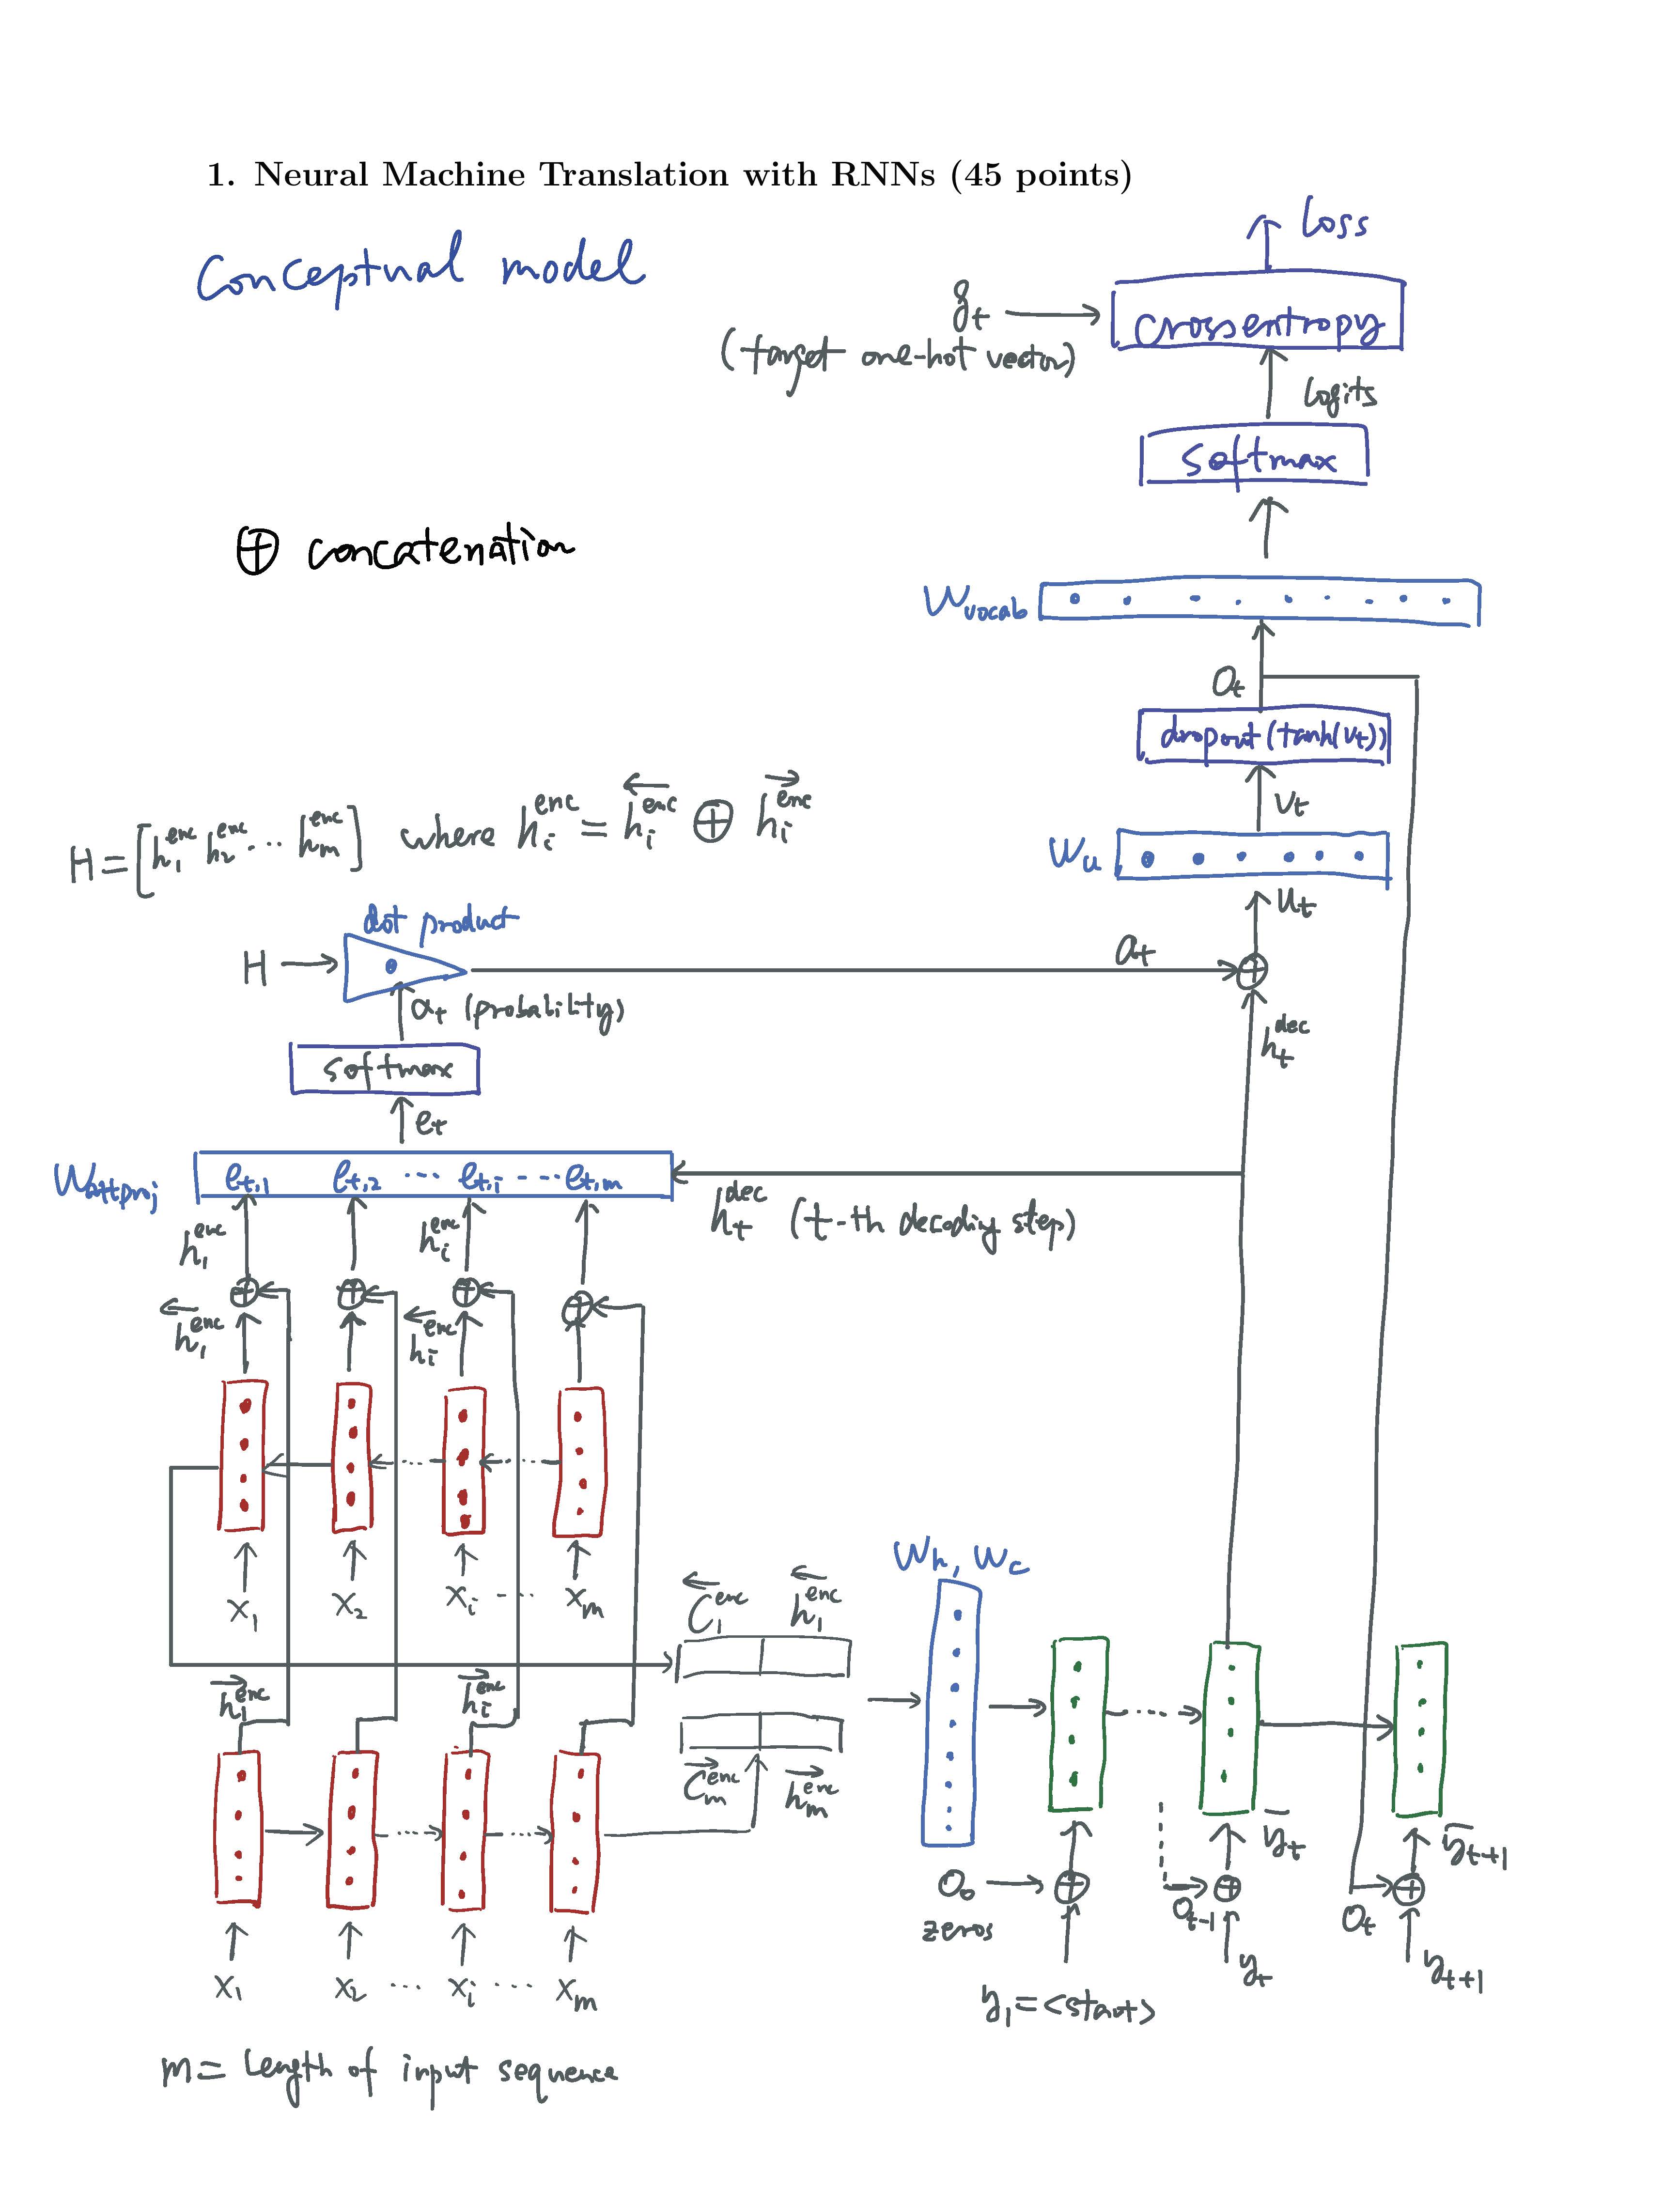 1. Neural Machine Translation with RNNs (45 points)
Conceptual model
Loss
g_t
crossentropy
(target one-hot vector)
logits
softmax
⊕ concatenation
W_vocab
O_t
dropout(tanh(v_t))
v_t
H = [h_1^enc h_2^enc ... h_m^enc] where h_i^enc = ←h_i^enc ⊕ →h_i^enc
W_u
u_t
dot product
H
a_t
α_t (probability)
h_t^dec
softmax
e_t
W_attproj e_t,1 e_t,2 ... e_t,i ... e_t,m
h_t^dec (t-th decoding step)
h_1^enc h_i^enc
←h_1^enc ←h_i^enc
W_h, W_c
x_1 x_2 x_i ... x_m
←C_1^enc ←h_1^enc
→h_1^enc →h_i^enc
→C_m^enc →h_m^enc
ȳ_t ȳ_t+1
O_0
zeros
O_t-1 O_t
x_1 x_2 ... x_i ... x_m
y_t y_t+1
y_1 = <start>
m = length of input sequence